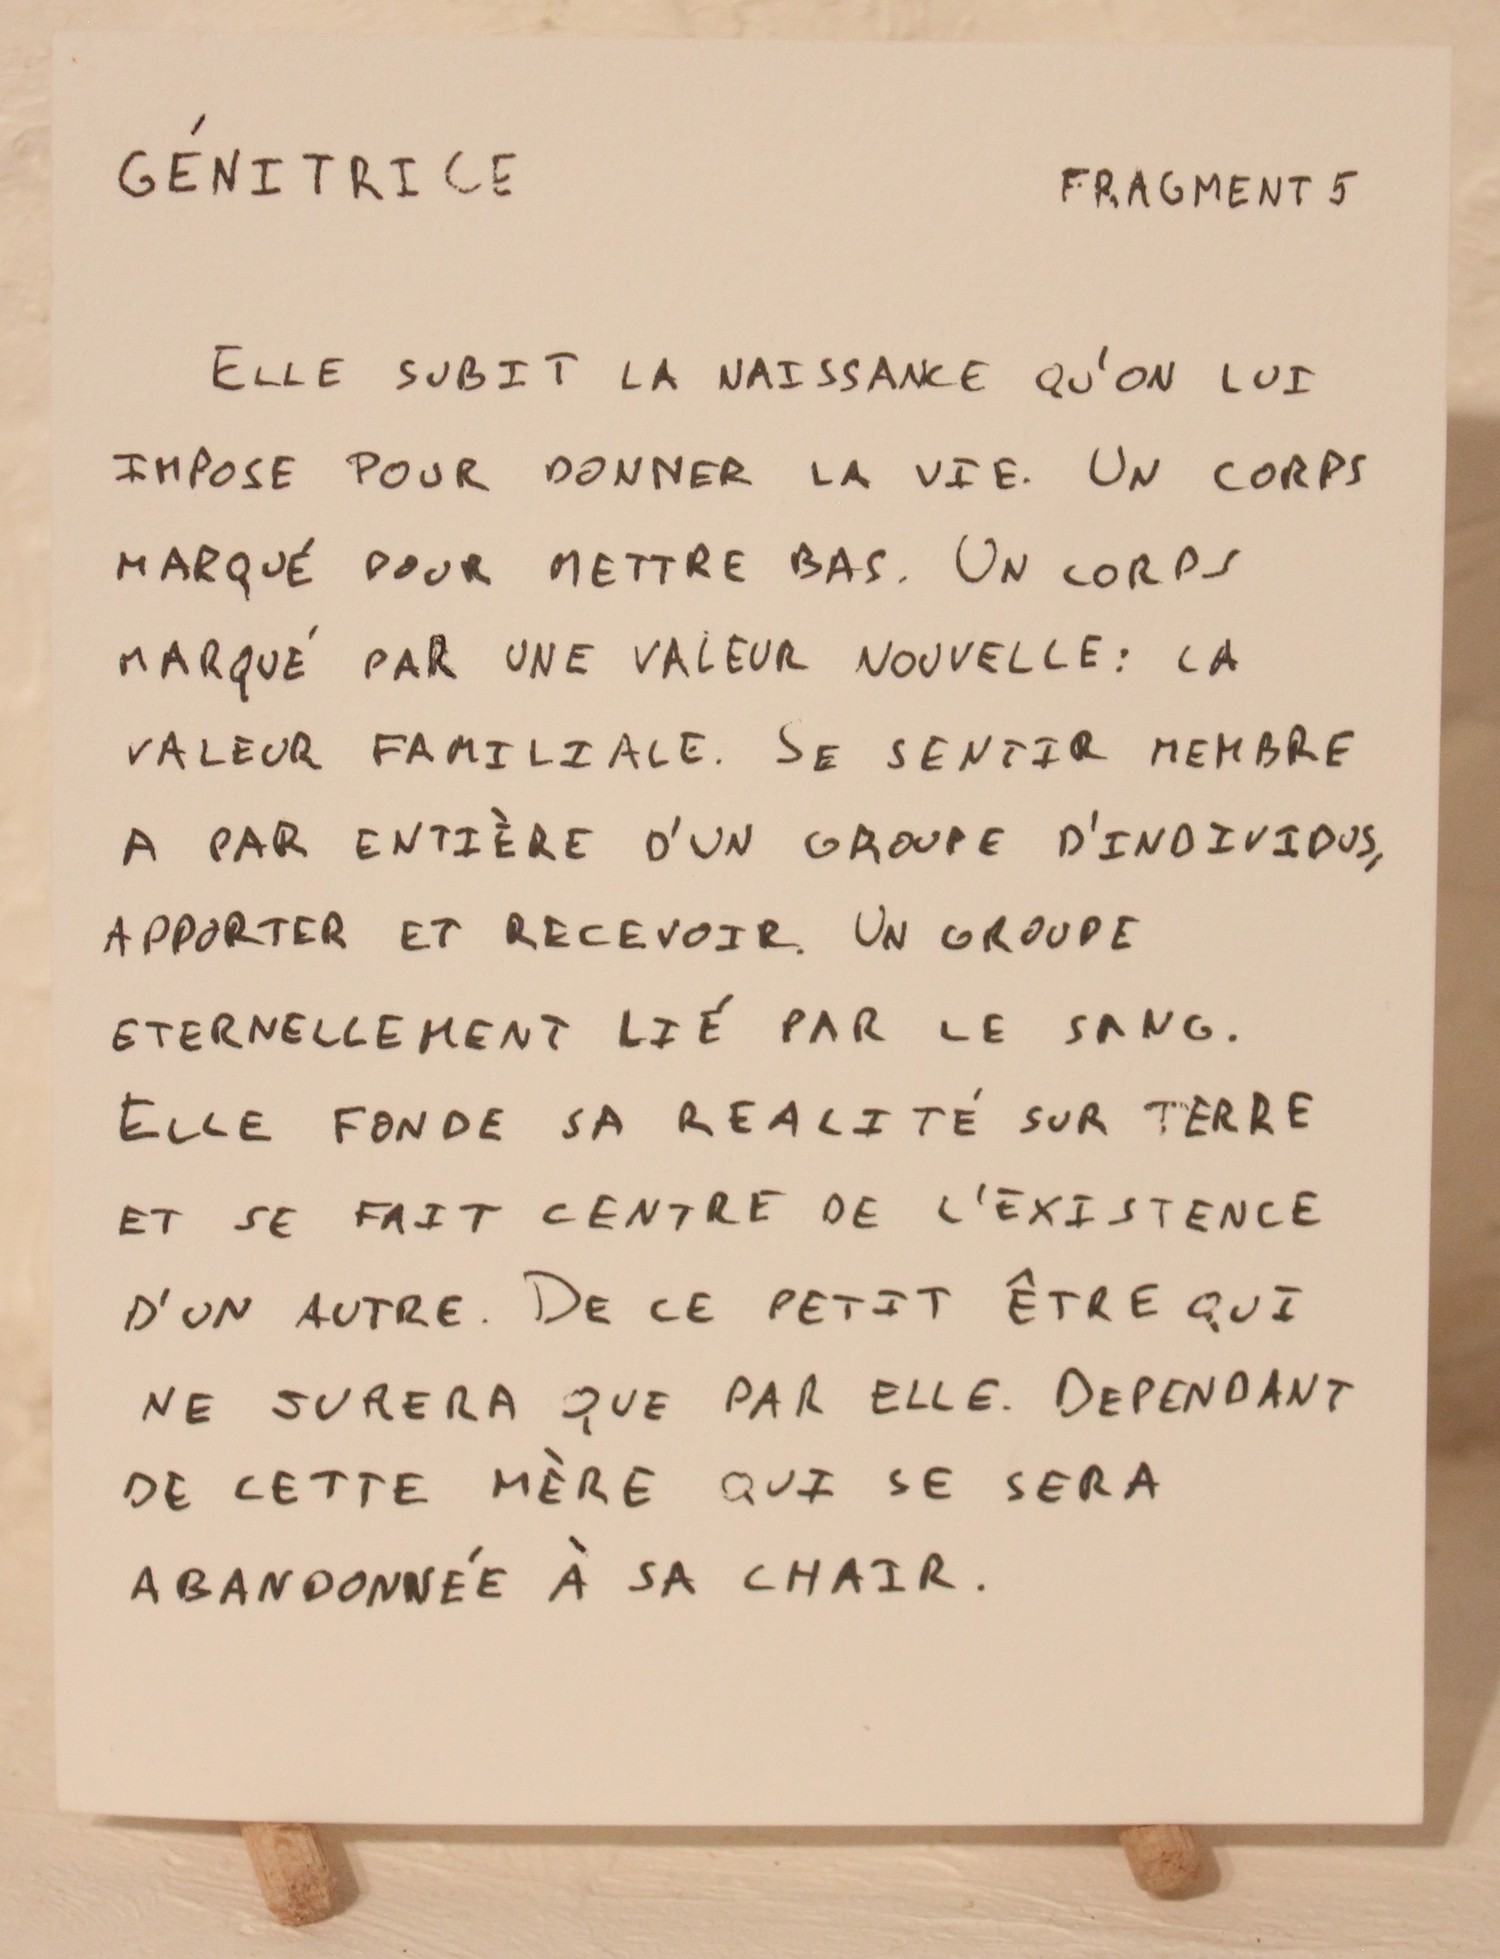 GÉNITRICE FRAGMENT 5
ELLE SUBIT LA NAISSANCE QU'ON LUI
IMPOSE POUR DONNER LA VIE. UN CORPS
MARQUÉ POUR METTRE BAS. UN CORPS
MARQUÉ PAR UNE VALEUR NOUVELLE: LA
VALEUR FAMILIALE. SE SENTIR MEMBRE
A PAR ENTIÈRE D'UN GROUPE D'INDIVIDUS,
APPORTER ET RECEVOIR. UN GROUPE
ETERNELLEMENT LIÉ PAR LE SANG.
ELLE FONDE SA REALITÉ SUR TERRE
ET SE FAIT CENTRE DE L'EXISTENCE
D'UN AUTRE. DE CE PETIT ÊTRE QUI
NE JURERA QUE PAR ELLE. DEPENDANT
DE CETTE MÈRE QUI SE SERA
ABANDONNÉE À SA CHAIR.